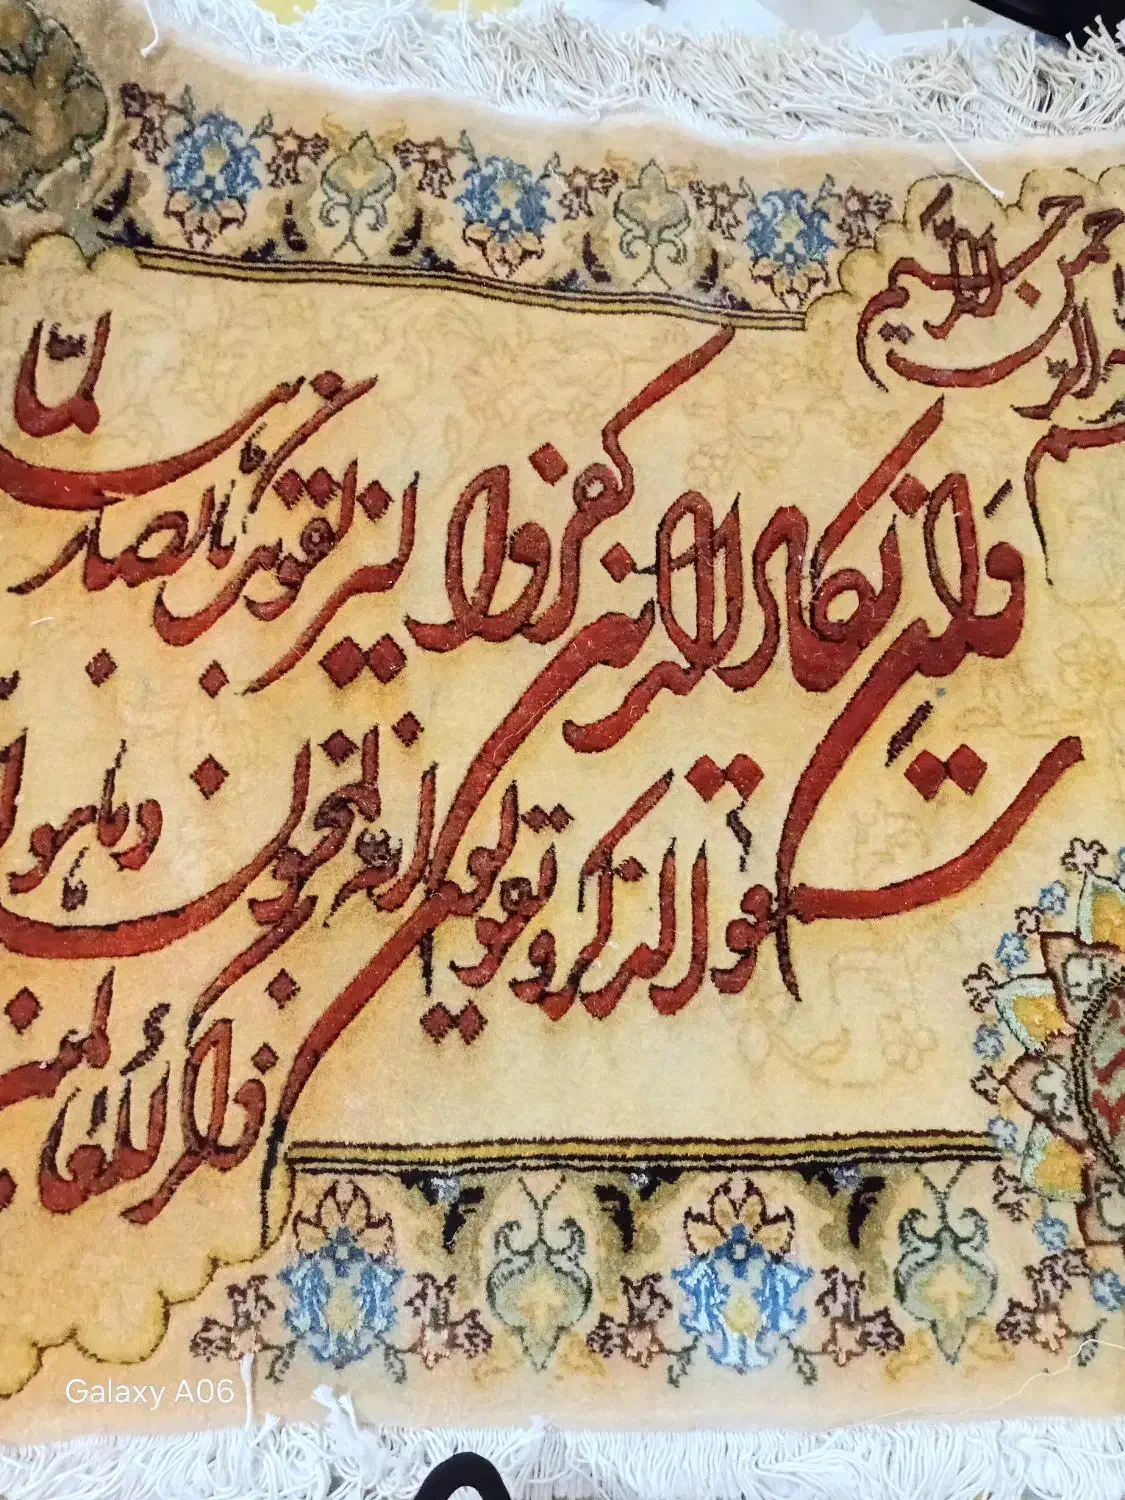 بسم الله الرحمن الرحیم
وان یکاد الذین کفروا لیزلقونک بابصارهم لما
سمعوا الذکر و یقولون انه لمجنون و ما هو
الا ذکر للعالمین
Galaxy A06